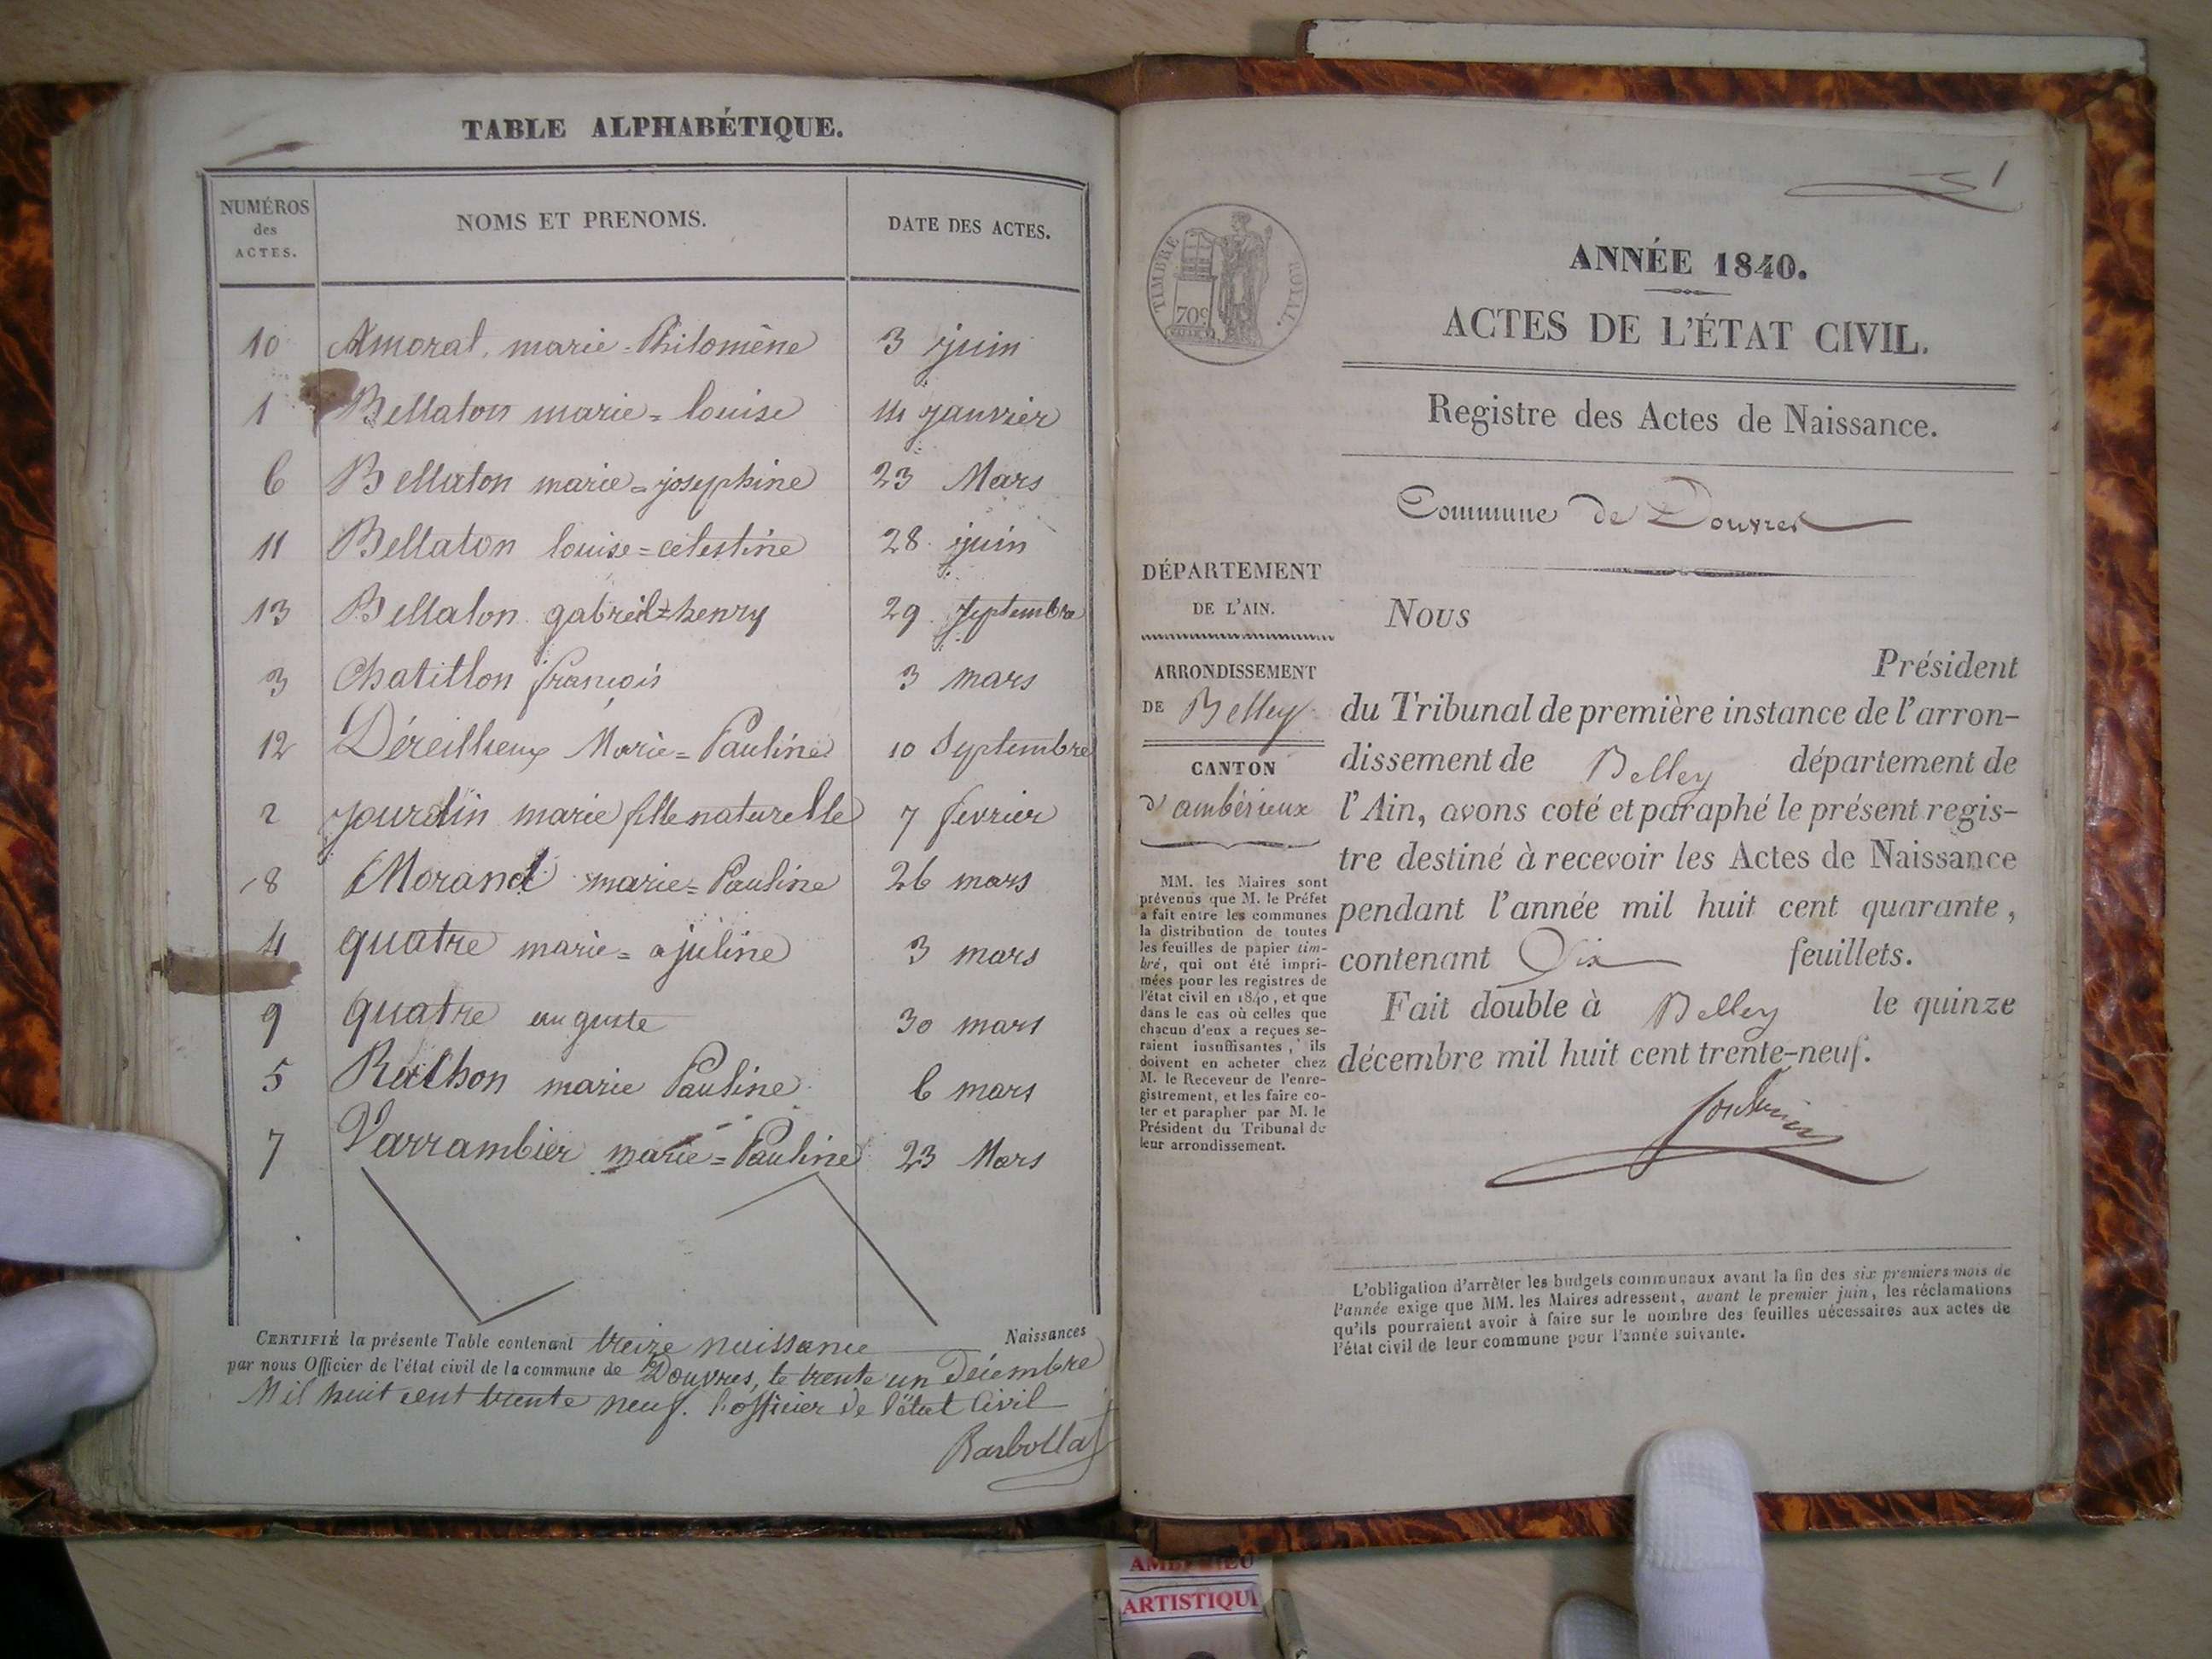 TABLE ALPHABÉTIQUE.
NUMÉROS des ACTES. NOMS ET PRENOMS. DATE DES ACTES.
10 Amoral, marie-Philomène 3 juin
1 Bellaton marie=louise 14 janvier
6 Bellaton marie=josephine 23 Mars
11 Bellaton louise=celestine 28 juin
13 Bellaton gabriel=henry 29 septembre
3 Chatillon françois 3 mars
12 Déreilleux Marie=Pauline 10 Septembre
2 jourdin marie fille naturelle 7 fevrier
8 Morand marie=Pauline 26 mars
4 quatre marie= ajuline 3 mars
9 quatre auguste 30 mars
5 Rathon marie Pauline 6 mars
7 Varrambier marie=Pauline 23 Mars
CERTIFIÉ la présente Table contenant treize naissance Naissances
par nous Officier de l'état civil de la commune de Douvres, le trente un Décembre
Mil huit cent trente neuf. l'officier de l'état Civil
Barbollat
1
TIMBRE ROYAL.
70c
ANNÉE 1840.
ACTES DE L'ÉTAT CIVIL.
Registre des Actes de Naissance.
Commune de Douvres
DÉPARTEMENT
DE L'AIN.
ARRONDISSEMENT
DE Belley
CANTON
d'ambérieux
MM. les Maires sont
prévenus que M. le Préfet
a fait entre les communes
la distribution de toutes
les feuilles de papier tim-
bré, qui ont été impri-
mées pour les registres de
l'état civil en 1840, et que
dans le cas où celles que
chacun d'eux a reçues se-
raient insuffisantes, ils
doivent en acheter chez
M. le Receveur de l'enre-
gistrement, et les faire co-
ter et parapher par M. le
Président du Tribunal de
leur arrondissement.
Nous
Président
du Tribunal de première instance de l'arron-
dissement de Belley département de
l'Ain, avons coté et paraphé le présent regis-
tre destiné à recevoir les Actes de Naissance
pendant l'année mil huit cent quarante,
contenant Dix feuillets.
Fait double à Belley le quinze
décembre mil huit cent trente-neuf.
L'obligation d'arrêter les budgets communaux avant la fin des six premiers mois de
l'année exige que MM. les Maires adressent, avant le premier juin, les réclamations
qu'ils pourraient avoir à faire sur le nombre des feuilles nécessaires aux actes de
l'état civil de leur commune pour l'année suivante.
ARTISTIQU